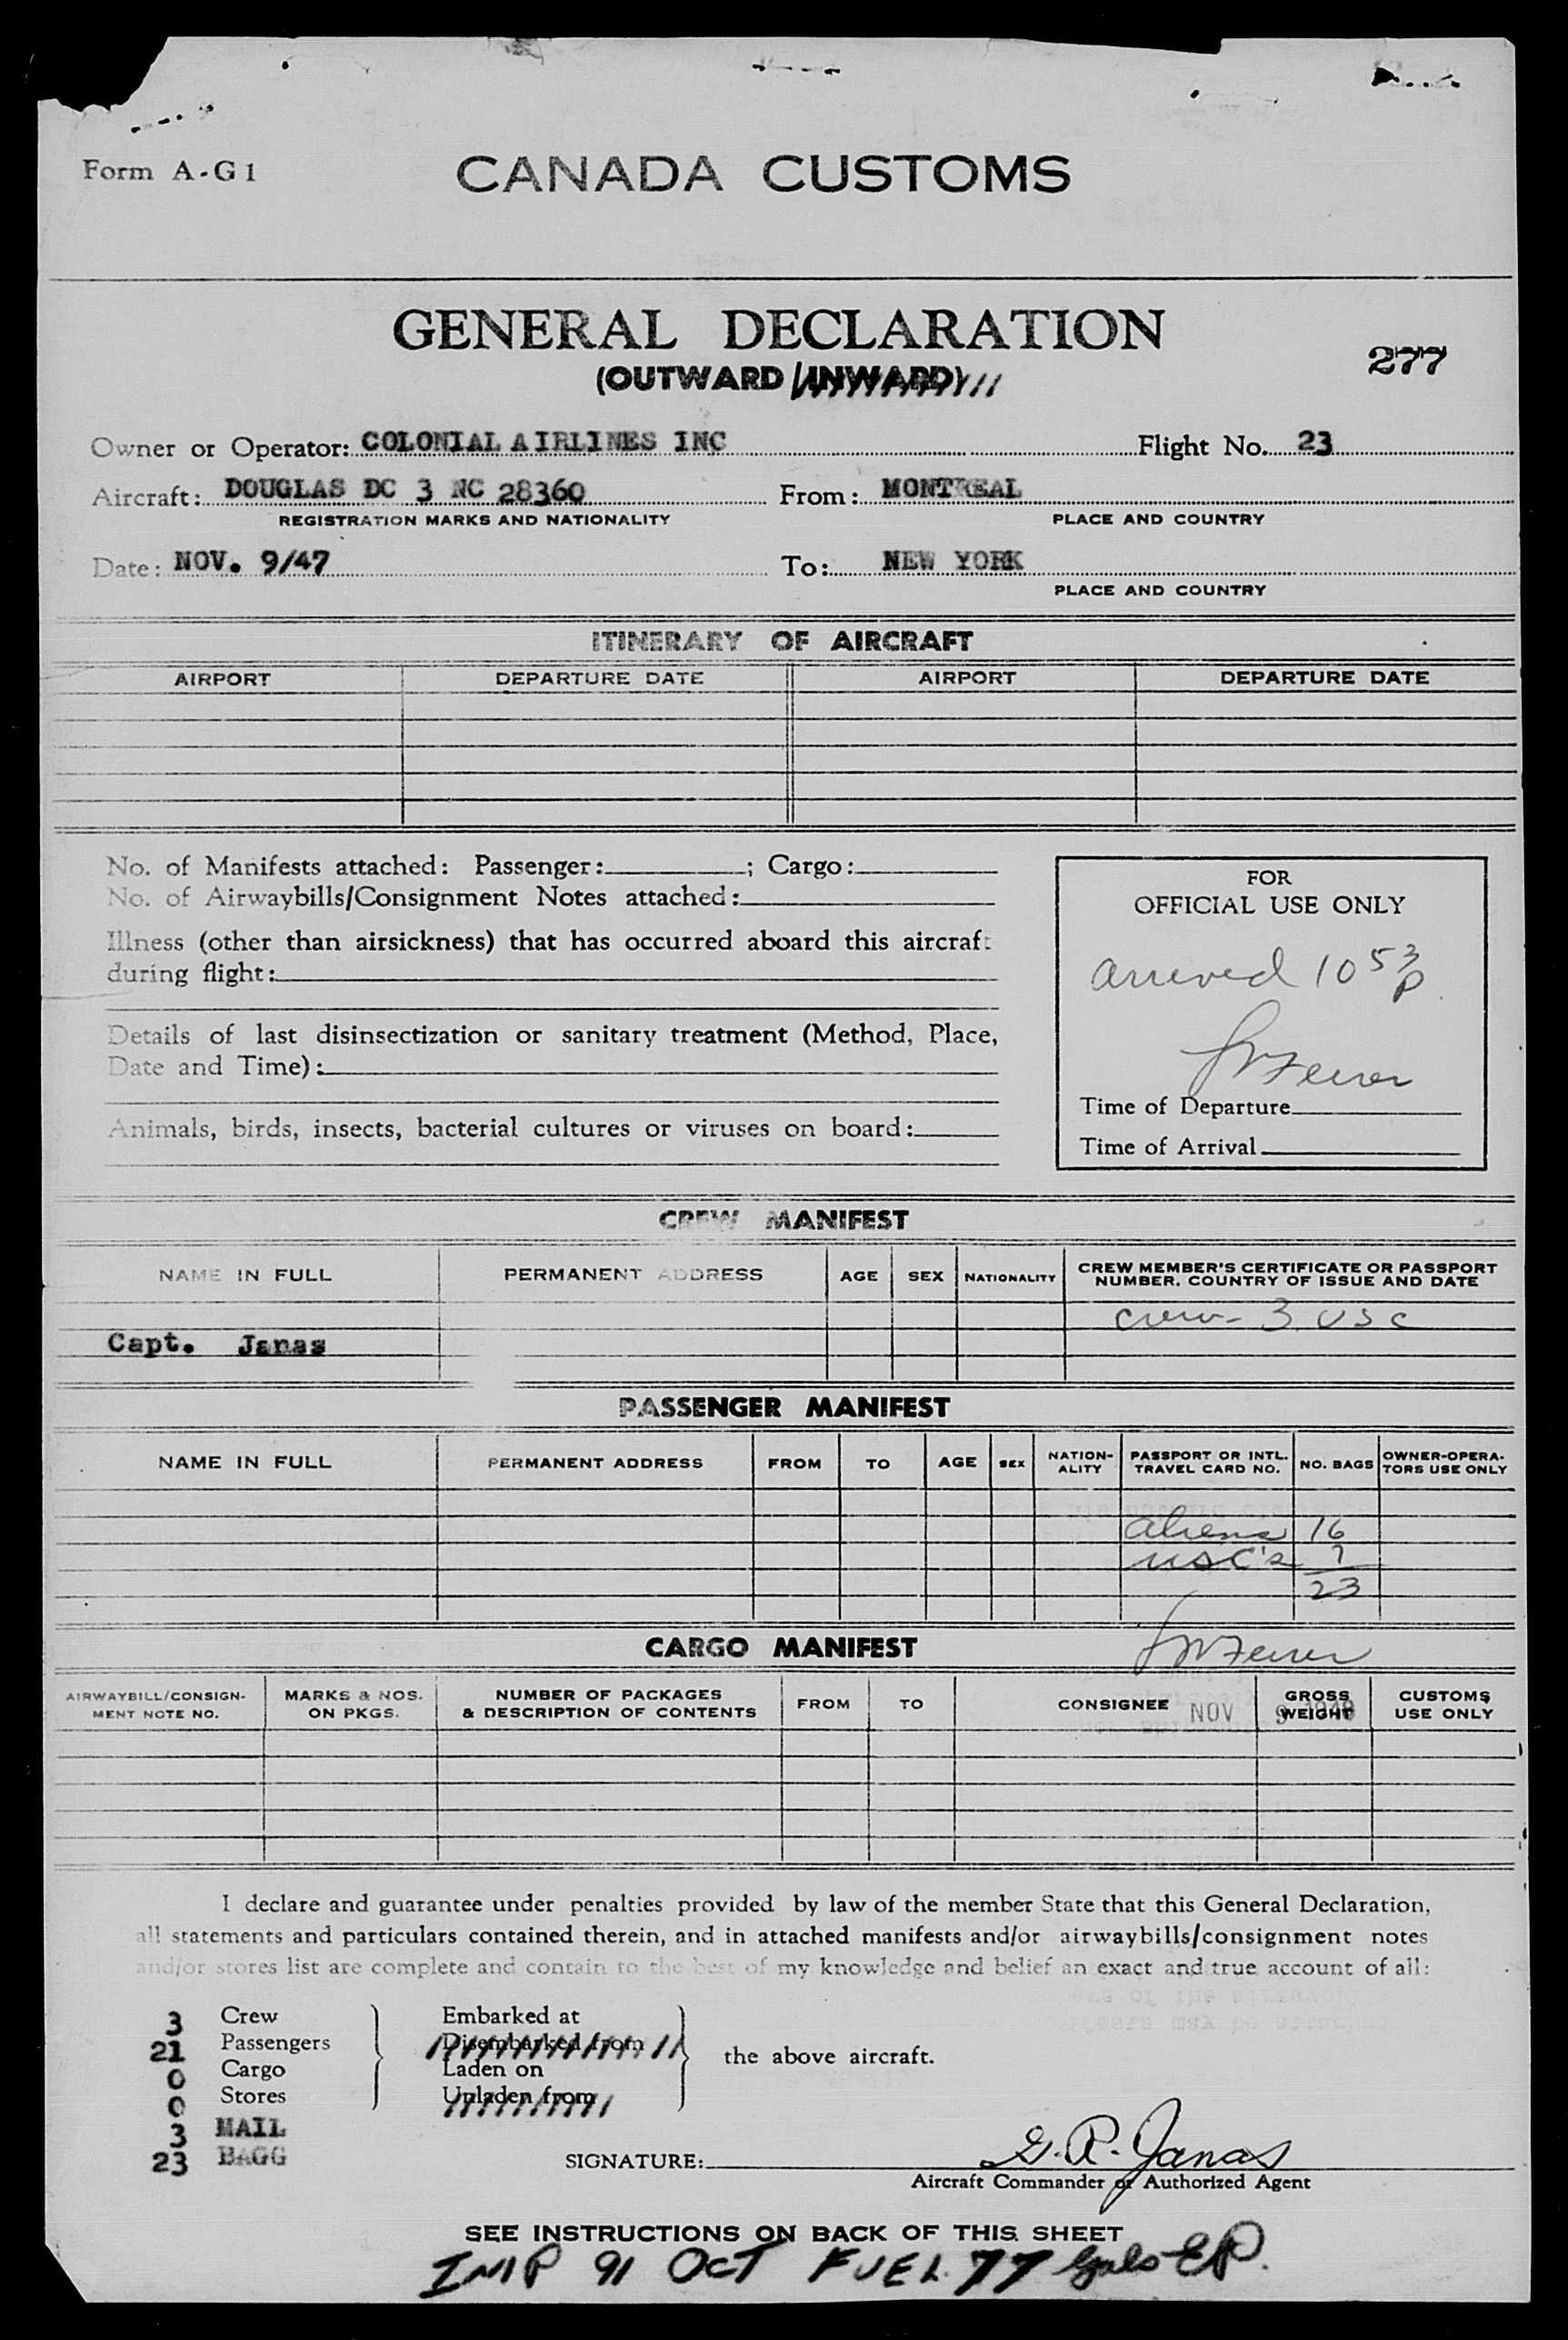 Form A-G1
CANADA CUSTOMS
GENERAL DECLARATION
(OUTWARD/INWARD)
277
Owner or Operator: COLONIAL AIRLINES INC Flight No. 23
Aircraft: DOUGLAS DC 3 NC 28360 From: MONTREAL
REGISTRATION MARKS AND NATIONALITY PLACE AND COUNTRY
Date: NOV. 9/47 To: NEW YORK
PLACE AND COUNTRY
ITINERARY OF AIRCRAFT
AIRPORT DEPARTURE DATE AIRPORT DEPARTURE DATE
No. of Manifests attached: Passenger: ; Cargo:
No. of Airwaybills/Consignment Notes attached:
Illness (other than airsickness) that has occurred aboard this aircraft
during flight:
Details of last disinsectization or sanitary treatment (Method, Place,
Date and Time):
Animals, birds, insects, bacterial cultures or viruses on board:
FOR
OFFICIAL USE ONLY
arrived 10 53 p
Time of Departure
Time of Arrival
CREW MANIFEST
NAME IN FULL PERMANENT ADDRESS AGE SEX NATIONALITY CREW MEMBER'S CERTIFICATE OR PASSPORT
NUMBER, COUNTRY OF ISSUE AND DATE
crew - 3 USC
Capt. Janas
PASSENGER MANIFEST
NAME IN FULL PERMANENT ADDRESS FROM TO AGE SEX NATION-
ALITY PASSPORT OR INTL.
TRAVEL CARD NO. NO. BAGS OWNER-OPERA-
TORS USE ONLY
aliens 16
USC's 7
23
CARGO MANIFEST
AIRWAYBILL/CONSIGN-
MENT NOTE NO. MARKS & NOS.
ON PKGS. NUMBER OF PACKAGES
& DESCRIPTION OF CONTENTS FROM TO CONSIGNEE GROSS
WEIGHT CUSTOMS
USE ONLY
NOV 9 1948
I declare and guarantee under penalties provided by law of the member State that this General Declaration,
all statements and particulars contained therein, and in attached manifests and/or airwaybills/consignment notes
and/or stores list are complete and contain to the best of my knowledge and belief an exact and true account of all:
3 Crew Embarked at
21 Passengers Disembarked from
the above aircraft.
0 Cargo Laden on
0 Stores Unladen from
3 MAIL
23 BAGG
SIGNATURE: G. R. Janas
Aircraft Commander or Authorized Agent
SEE INSTRUCTIONS ON BACK OF THIS SHEET
IMP 91 OCT FUEL 77 Gals EP.